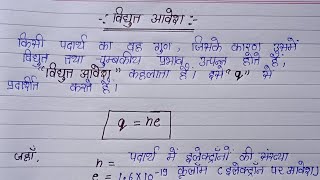 -: विद्युत आवेश :-
किसी पदार्थ का वह गुण, जिसके कारण उसमें
विद्युत तथा चुम्बकीय प्रभाव उत्पन्न होते हैं,
"विद्युत आवेश" कहलाता है। इसे "q" से
प्रदर्शित करते हैं।
q = ne
जहाँ, n = पदार्थ में इलेक्ट्रॉनों की संख्या
e = 1.6×10⁻¹⁹ कूलॉम (इलेक्ट्रॉन पर आवेश)